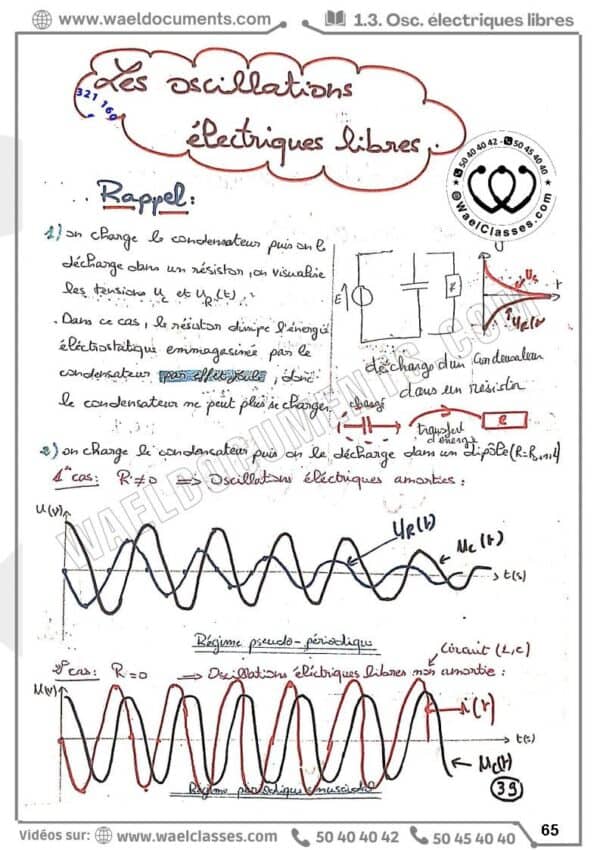 www.waeldocuments.com
1.3. Osc. électriques libres
Les oscillations
321 169
électriques libres.
50 40 40 42 - 50 45 40 40
@WaelClasses.com
Rappel:
1) on charge le condensateur puis on le
décharge dans un résistor, on visualise
les tensions Uc et UR(t).
. Dans ce cas, le résistor dissipe l'énergie
éléctrostatique emmagasinée par le
condensateur par effet joule, donc
le condensateur ne peut plus se charger.
E
R
U
t
décharge d'un condensateur
dans un résistor
chargé
transfert
d'énergie
R
2) on charge le condensateur puis on le décharge dans un dipôle
1er cas: R≠0 => Oscillations éléctriques amorties:
U(V)
UR(t)
uc(t)
t(s)
Régime pseudo-périodique
Circuit (L,C)
2e cas: R=0 => Oscillations éléctriques libres non amortie:
U(V)
i(t)
t(s)
uc(t)
Régime périodique sinusoidal
39
WAELDOCUMENTS.COM
65
Vidéos sur: www.waelclasses.com 50 40 40 42 50 45 40 40